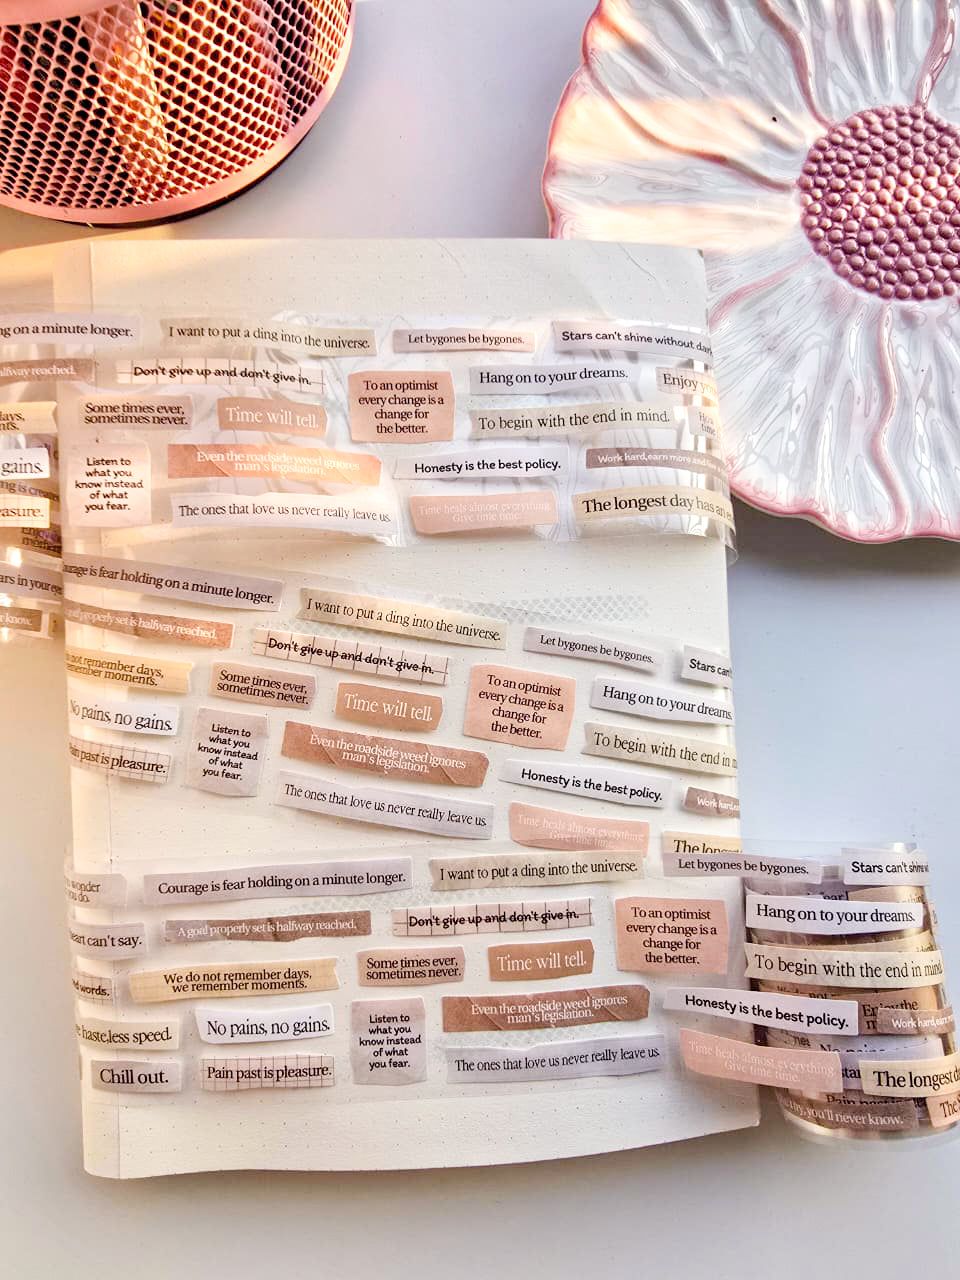 ng on a minute longer.
I want to put a ding into the universe.
Let bygones be bygones.
Stars can't shine without dar
halfway reached.
Don't give up and don't give in.
To an optimist
every change is a
change for
the better.
Hang on to your dreams.
Enjoy
days,
Some times ever,
sometimes never.
Time will tell.
To begin with the end in mind.
gains.
Listen to
what you
know instead
of what
you fear.
Even the roadside weed ignores
man's legislation.
Honesty is the best policy.
Work hard,earn more and
easure.
The ones that love us never really leave us.
Time heals almost everything.
Give time time.
The longest day has an
ars in your eye
know.
ourage is fear holding on a minute longer.
I want to put a ding into the universe.
Let bygones be bygones.
Stars can't
goal properly set is halfway reached.
Don't give up and don't give in.
not remember days,
remember moments.
Some times ever,
sometimes never.
Time will tell.
To an optimist
every change is a
change for
the better.
Hang on to your dreams.
No pains, no gains.
Listen to
what you
know instead
of what
you fear.
Even the roadside weed ignores
man's legislation.
To begin with the end in m
ain past is pleasure.
Honesty is the best policy.
Work hard,ea
The ones that love us never really leave us.
Time heals almost everything.
Give time time.
The long
wonder
you do.
Courage is fear holding on a minute longer.
I want to put a ding into the universe.
Let bygones be bygones.
Stars can't shine wi
heart can't say.
A goal properly set is halfway reached.
Don't give up and don't give in.
To an optimist
every change is a
change for
the better.
Hang on to your dreams.
d words.
We do not remember days,
we remember moments.
Some times ever,
sometimes never.
Time will tell.
To begin with the end in mind
haste,less speed.
No pains, no gains.
Listen to
what you
know instead
of what
you fear.
Even the roadside weed ignores
man's legislation.
Honesty is the best policy.
Enjoy the
Work hard,earn
Chill out.
Pain past is pleasure.
The ones that love us never really leave us.
Time heals almost everything.
Give time time.
The longest d
try,you'll never know.
The S